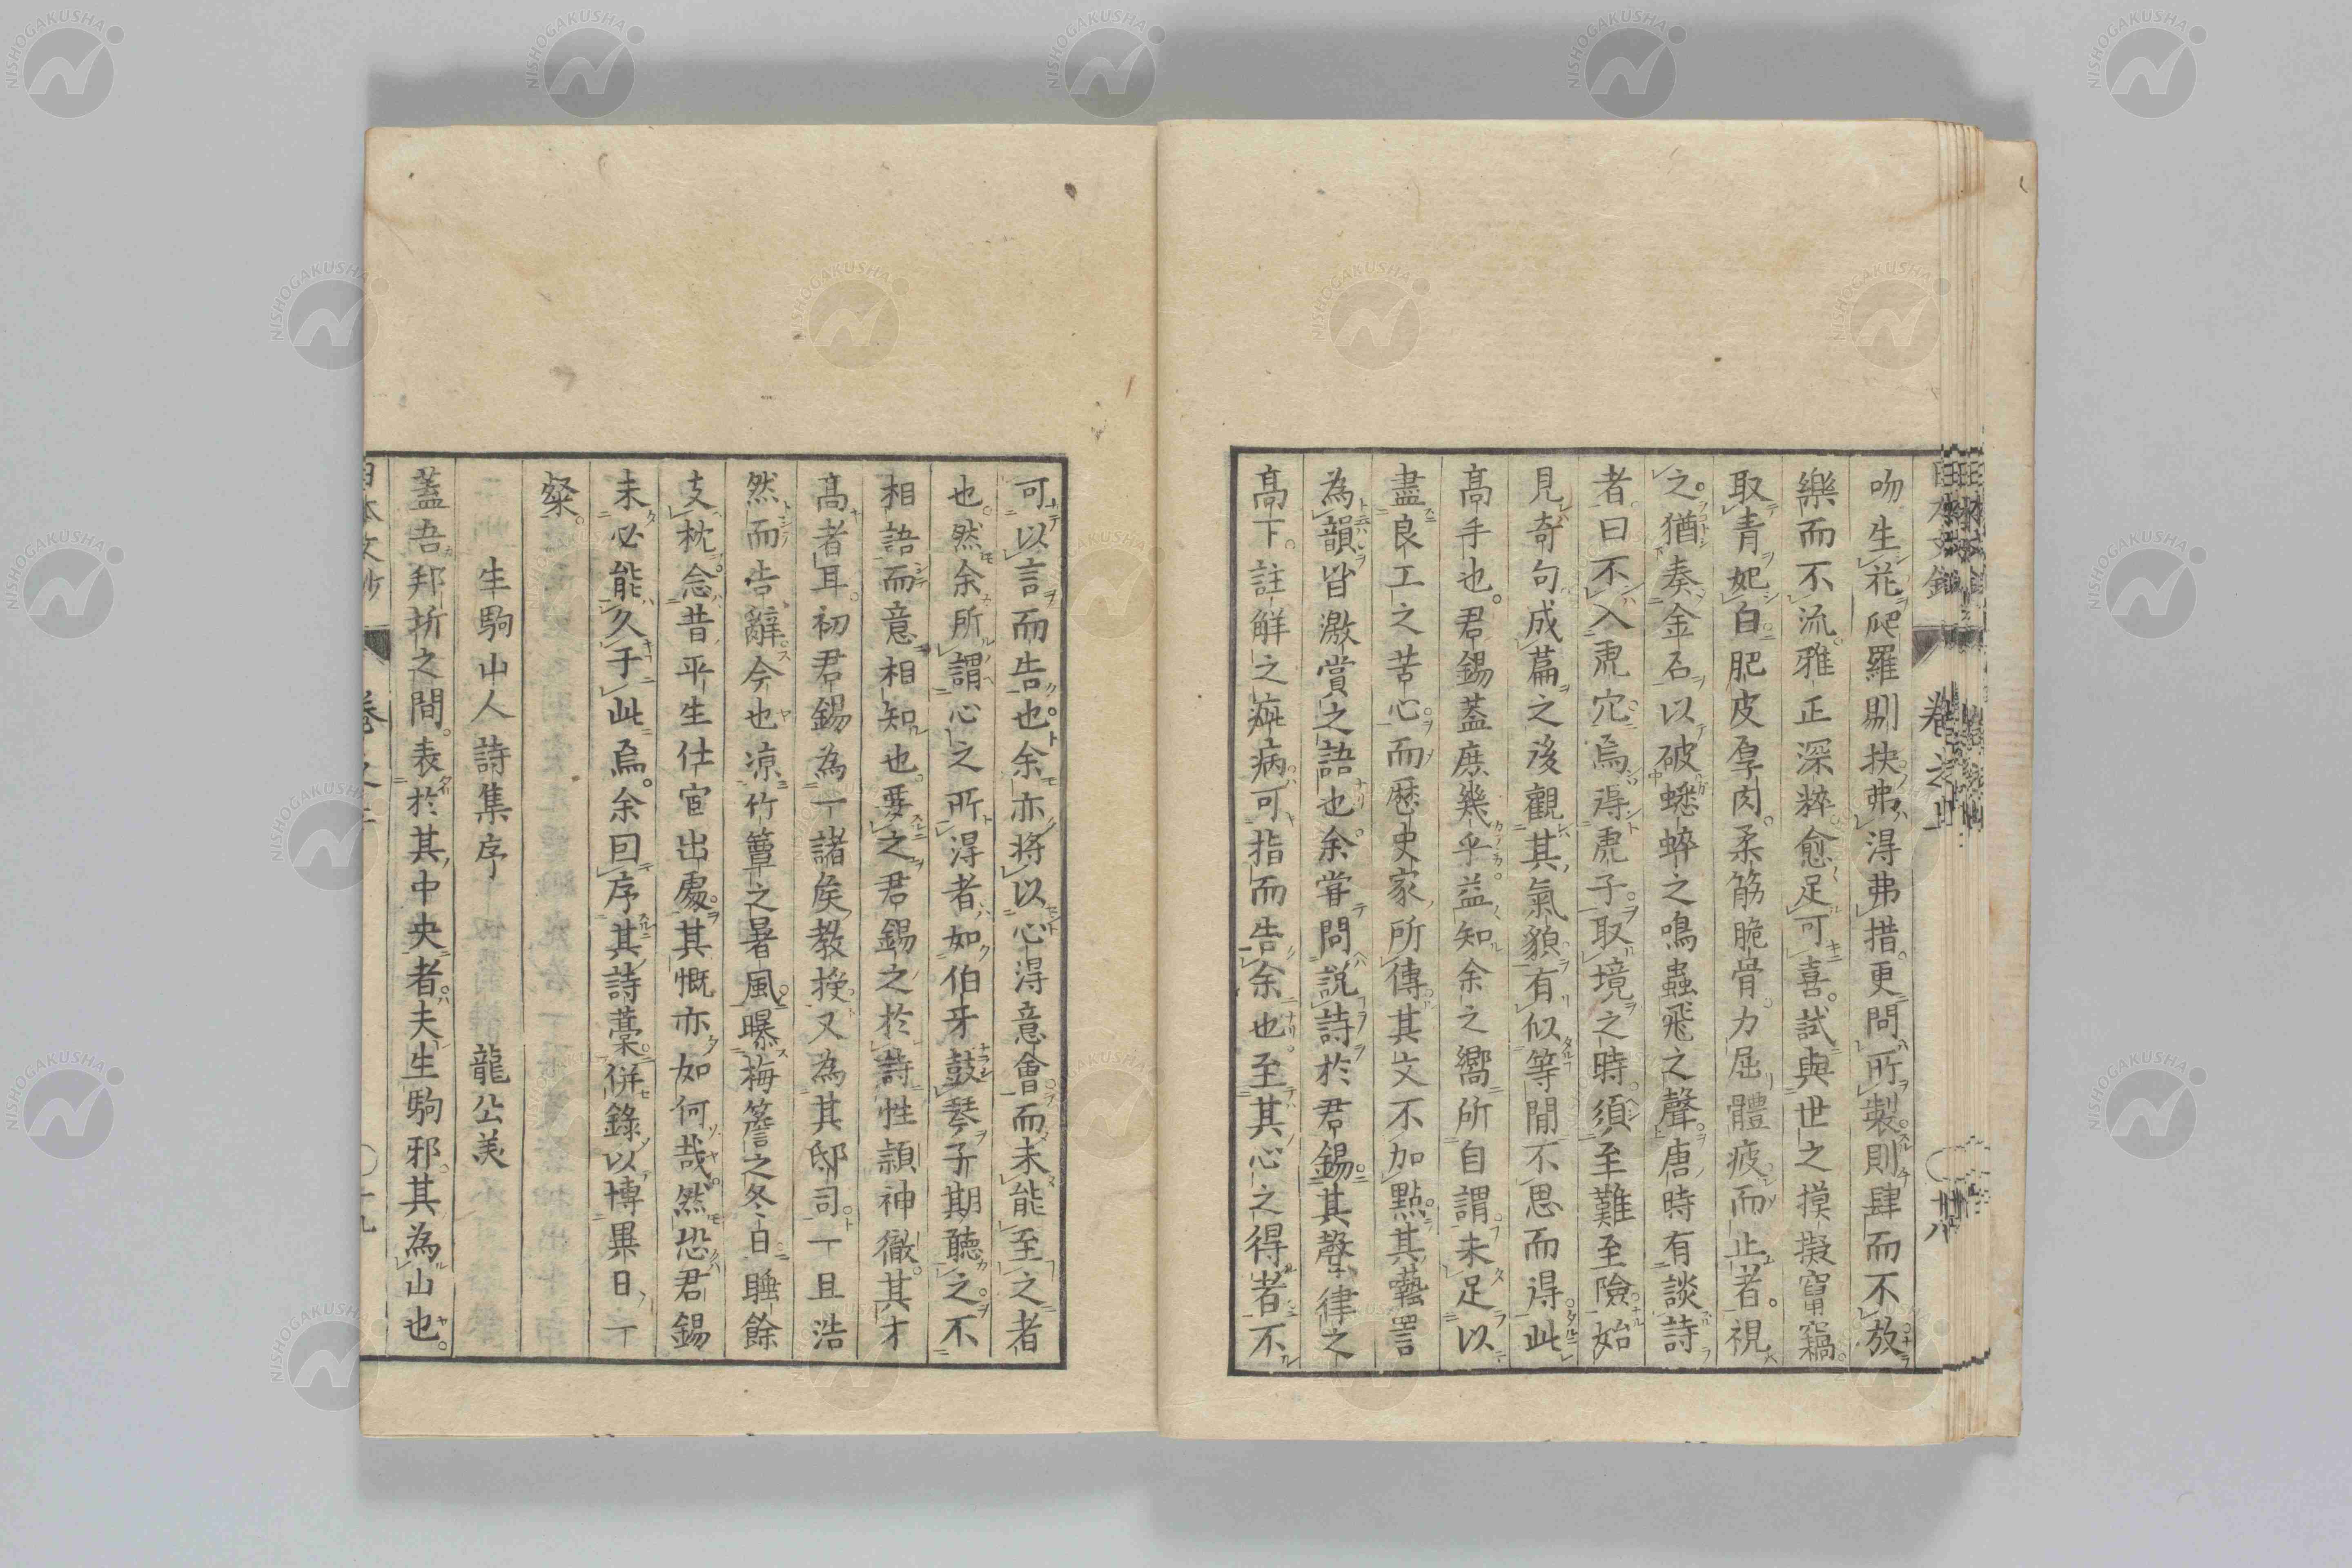 吻生花爬羅剔抉弗得弗措更問所製則肆而不放
樂而不流雅正深粹愈足可喜試與世之摸擬竄竊
取青妃白肥皮厚肉柔筋脆骨力屈體疲而止者視
之猶奏金石以破蟋蟀之鳴蟲飛之聲唐時有談詩
者曰不入虎穴焉得虎子取境之時須至難至險始
見奇句成篇之後觀其氣貌有似等閒不思而得此
高手也君錫蓋庶幾乎益知余之嚮所自謂未足以
盡良工之苦心而歷史家所傳其文不加點其藝詈
為韻皆激賞之語也余嘗問說詩於君錫其聲律之
高下註解之疵病可指而告余也至其心之得者不
可以言而告也余亦將以心得意會而未能至之者
也然余所謂心之所得者如伯牙鼓琴子期聽之不
相語而意相知也要之君錫之於詩性穎神徹其才
高者耳初君錫為一諸侯教授又為其邸司一且浩
然而告辭今也凉竹簟之暑風曝梅簷之冬日睡餘
支枕念昔平生仕宦出處其慨亦如何哉然恐君錫
未必能久于此焉余回序其詩藁併錄以博畢日一
粲
生駒山人詩集序 龍公美
蓋吾邦折之間表於其中央者夫生駒邪其為山也
卷之